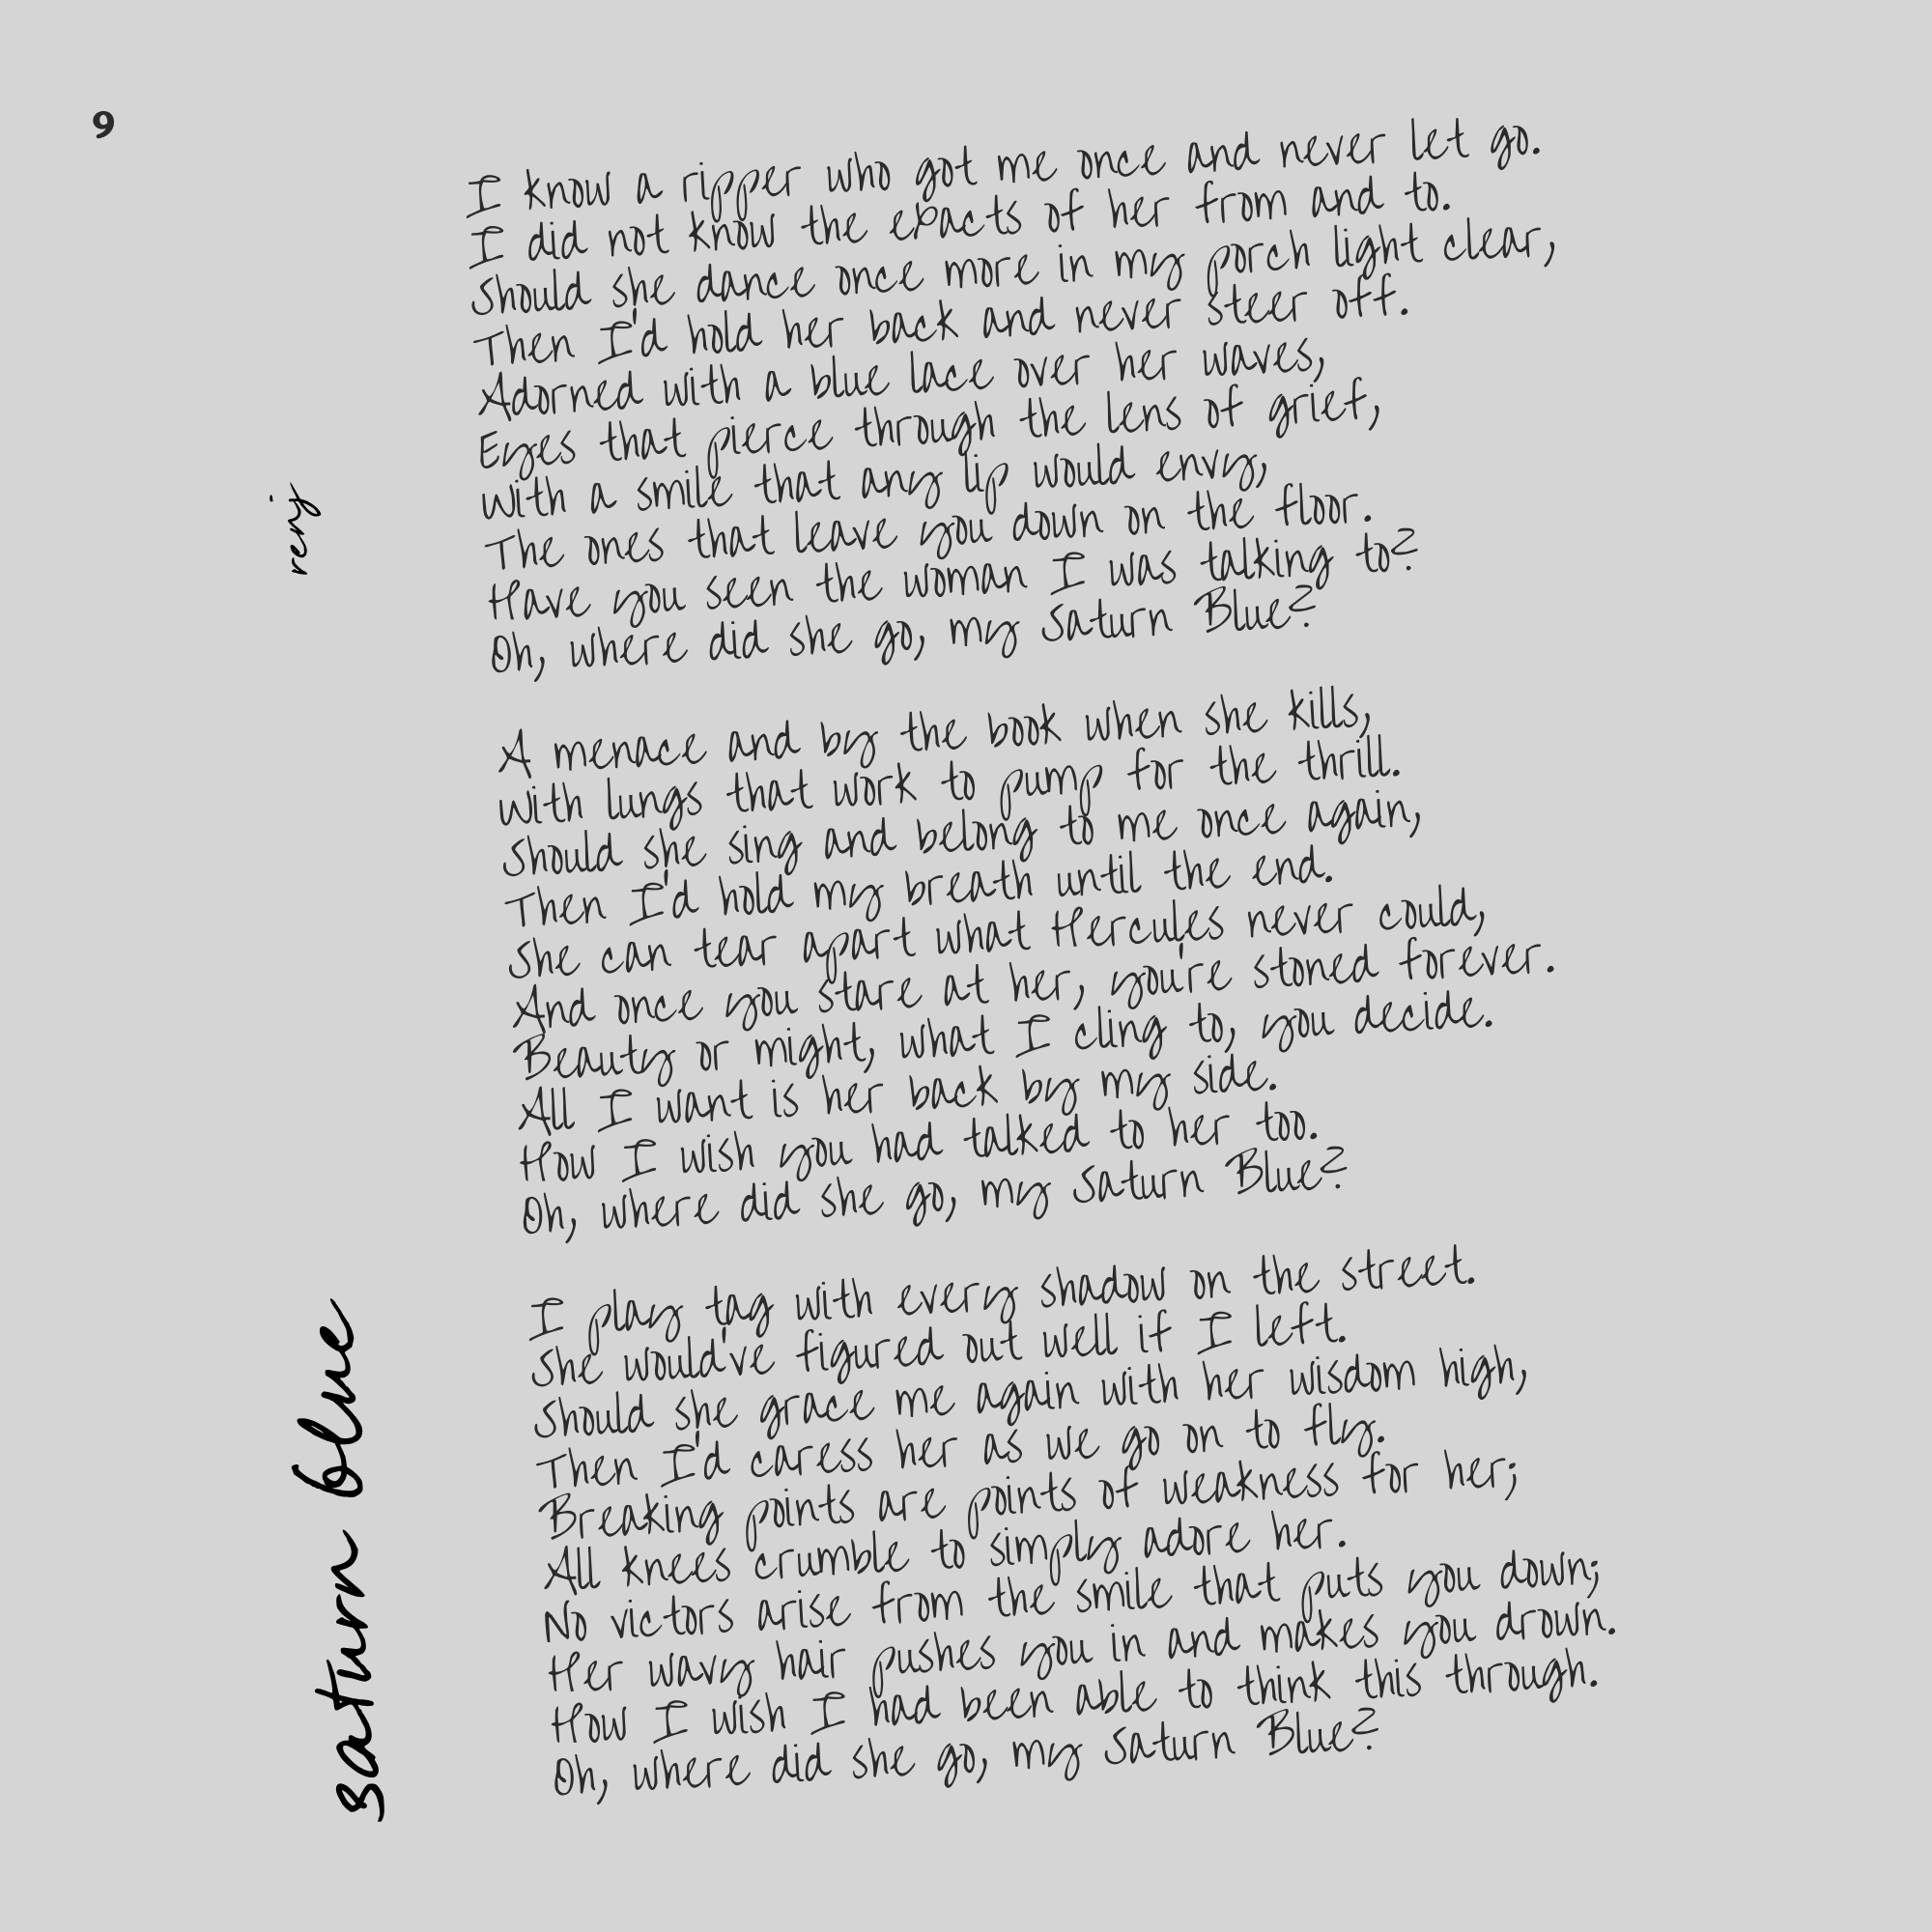 9
saturn blue
renj
I know a ripper who got me once and never let go.
I did not know the exacts of her from and to.
Should she dance once more in my porch light clear,
Then I'd hold her back and never steer off.
Adorned with a blue lace over her waves,
Eyes that pierce through the lens of grief,
With a smile that any lip would envy,
The ones that leave you down on the floor.
Have you seen the woman I was talking to?
Oh, where did she go, my Saturn Blue?
A menace and by the book when she kills,
With lungs that work to pump for the thrill.
Should she sing and belong to me once again,
Then I'd hold my breath until the end.
She can tear apart what Hercules never could,
And once you stare at her, you're stoned forever.
Beauty or might, what I cling to, you decide.
All I want is her back by my side.
How I wish you had talked to her too.
Oh, where did she go, my Saturn Blue?
I play tag with every shadow on the street.
She would've figured out well if I left.
Should she grace me again with her wisdom high,
Then I'd caress her as we go on to fly.
Breaking points are points of weakness for her;
All knees crumble to simply adore her.
No victors arise from the smile that puts you down;
Her wavy hair pushes you in and makes you drown.
How I wish I had been able to think this through.
Oh, where did she go, my Saturn Blue?